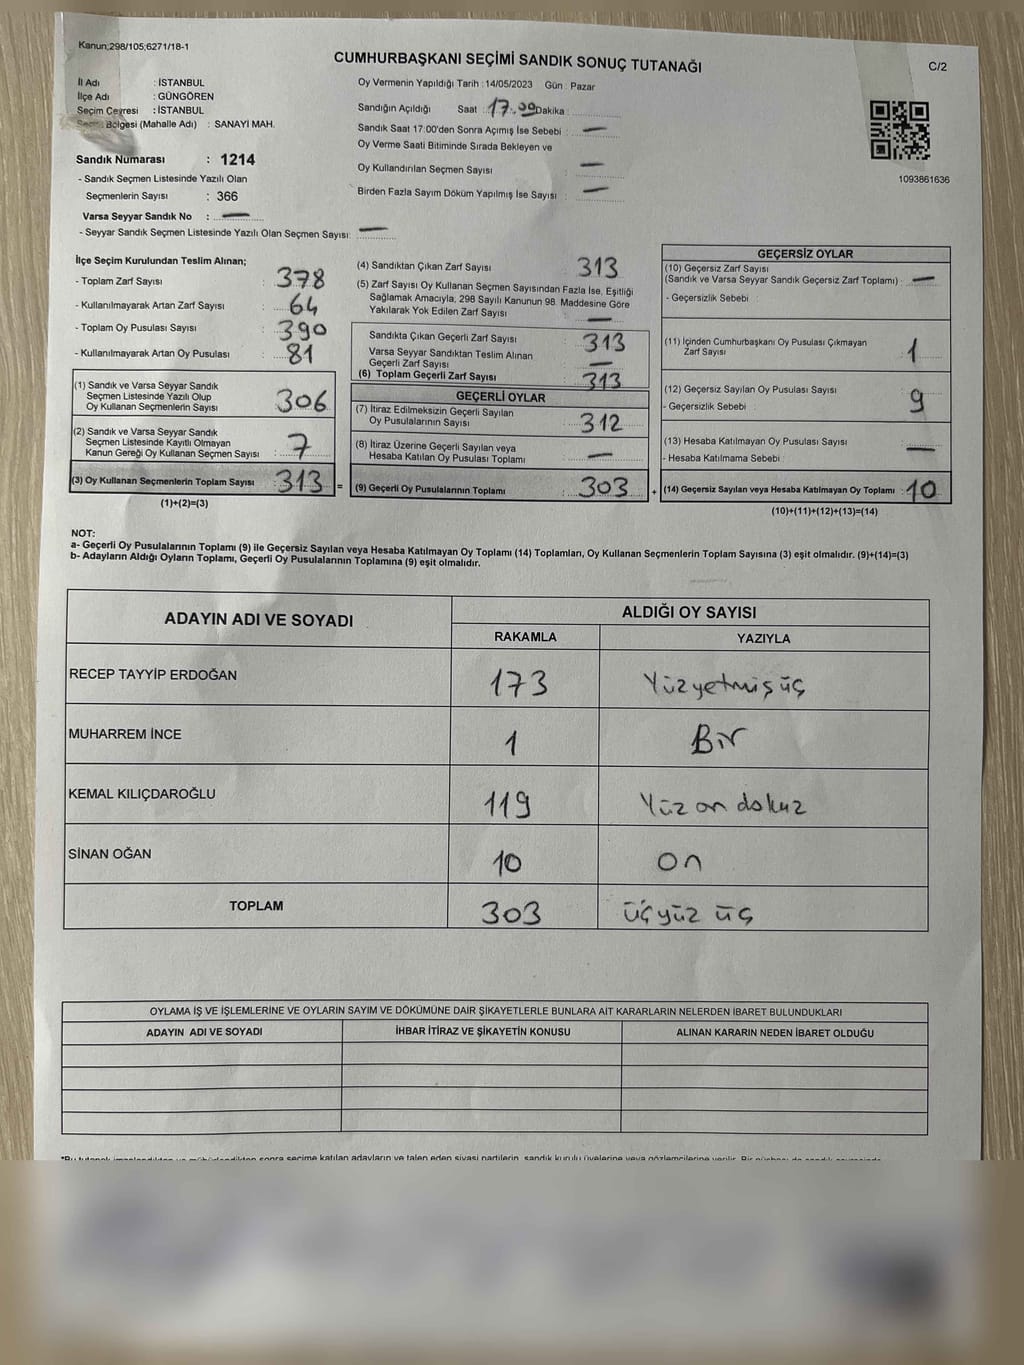 Kanun;298/105;6271/18-1
CUMHURBAŞKANI SEÇİMİ SANDIK SONUÇ TUTANAĞI
C/2
İl Adı : İSTANBUL
İlçe Adı : GÜNGÖREN
Seçim Çevresi : İSTANBUL
Seçim Bölgesi (Mahalle Adı) : SANAYİ MAH.
Sandık Numarası : 1214
- Sandık Seçmen Listesinde Yazılı Olan
Seçmenlerin Sayısı : 366
Varsa Seyyar Sandık No : —
- Seyyar Sandık Seçmen Listesinde Yazılı Olan Seçmen Sayısı: —
Oy Vermenin Yapıldığı Tarih : 14/05/2023 Gün : Pazar
Sandığın Açıldığı Saat : 17.00 Dakika :
Sandık Saat 17:00'den Sonra Açımış İse Sebebi : —
Oy Verme Saati Bitiminde Sırada Bekleyen ve
Oy Kullandırılan Seçmen Sayısı : —
Birden Fazla Sayım Döküm Yapılmış İse Sayısı : —
1093861636
İlçe Seçim Kurulundan Teslim Alınan;
- Toplam Zarf Sayısı : 378
- Kullanılmayarak Artan Zarf Sayısı : 64
- Toplam Oy Pusulası Sayısı : 390
- Kullanılmayarak Artan Oy Pusulası : 81
(1) Sandık ve Varsa Seyyar Sandık
Seçmen Listesinde Yazılı Olup
Oy Kullanan Seçmenlerin Sayısı : 306
(2) Sandık ve Varsa Seyyar Sandık
Seçmen Listesinde Kayıtlı Olmayan
Kanun Gereği Oy Kullanan Seçmen Sayısı : 7
(3) Oy Kullanan Seçmenlerin Toplam Sayısı : 313 =
(1)+(2)=(3)
(4) Sandıktan Çıkan Zarf Sayısı : 313
(5) Zarf Sayısı Oy Kullanan Seçmen Sayısından Fazla İse, Eşitliği
Sağlamak Amacıyla, 298 Sayılı Kanunun 98. Maddesine Göre
Yakılarak Yok Edilen Zarf Sayısı : —
Sandıkta Çıkan Geçerli Zarf Sayısı : 313
Varsa Seyyar Sandıktan Teslim Alınan
Geçerli Zarf Sayısı : —
(6) Toplam Geçerli Zarf Sayısı : 313
GEÇERLİ OYLAR
(7) İtiraz Edilmeksizin Geçerli Sayılan
Oy Pusulalarının Sayısı : 312
(8) İtiraz Üzerine Geçerli Sayılan veya
Hesaba Katılan Oy Pusulası Toplamı : —
(9) Geçerli Oy Pusulalarının Toplamı : 303 +
GEÇERSİZ OYLAR
(10) Geçersiz Zarf Sayısı
(Sandık ve Varsa Seyyar Sandık Geçersiz Zarf Toplamı) : —
- Geçersizlik Sebebi :
(11) İçinden Cumhurbaşkanı Oy Pusulası Çıkmayan
Zarf Sayısı : 1
(12) Geçersiz Sayılan Oy Pusulası Sayısı : 9
- Geçersizlik Sebebi :
(13) Hesaba Katılmayan Oy Pusulası Sayısı : —
- Hesaba Katılmama Sebebi :
(14) Geçersiz Sayılan veya Hesaba Katılmayan Oy Toplamı : 10
(10)+(11)+(12)+(13)=(14)
NOT:
a- Geçerli Oy Pusulalarının Toplamı (9) ile Geçersiz Sayılan veya Hesaba Katılmayan Oy Toplamı (14) Toplamları, Oy Kullanan Seçmenlerin Toplam Sayısına (3) eşit olmalıdır. (9)+(14)=(3)
b- Adayların Aldığı Oyların Toplamı, Geçerli Oy Pusulalarının Toplamına (9) eşit olmalıdır.
ADAYIN ADI VE SOYADI
ALDIĞI OY SAYISI
RAKAMLA YAZIYLA
RECEP TAYYİP ERDOĞAN 173 Yüzyetmişüç
MUHARREM İNCE 1 Bir
KEMAL KILIÇDAROĞLU 119 Yüz on dokuz
SİNAN OĞAN 10 on
TOPLAM 303 üçyüz üç
OYLAMA İŞ VE İŞLEMLERİNE VE OYLARIN SAYIM VE DÖKÜMÜNE DAİR ŞİKAYETLERLE BUNLARA AİT KARARLARIN NELERDEN İBARET BULUNDUKLARI
ADAYIN ADI VE SOYADI
İHBAR İTİRAZ VE ŞİKAYETİN KONUSU
ALINAN KARARIN NEDEN İBARET OLDUĞU